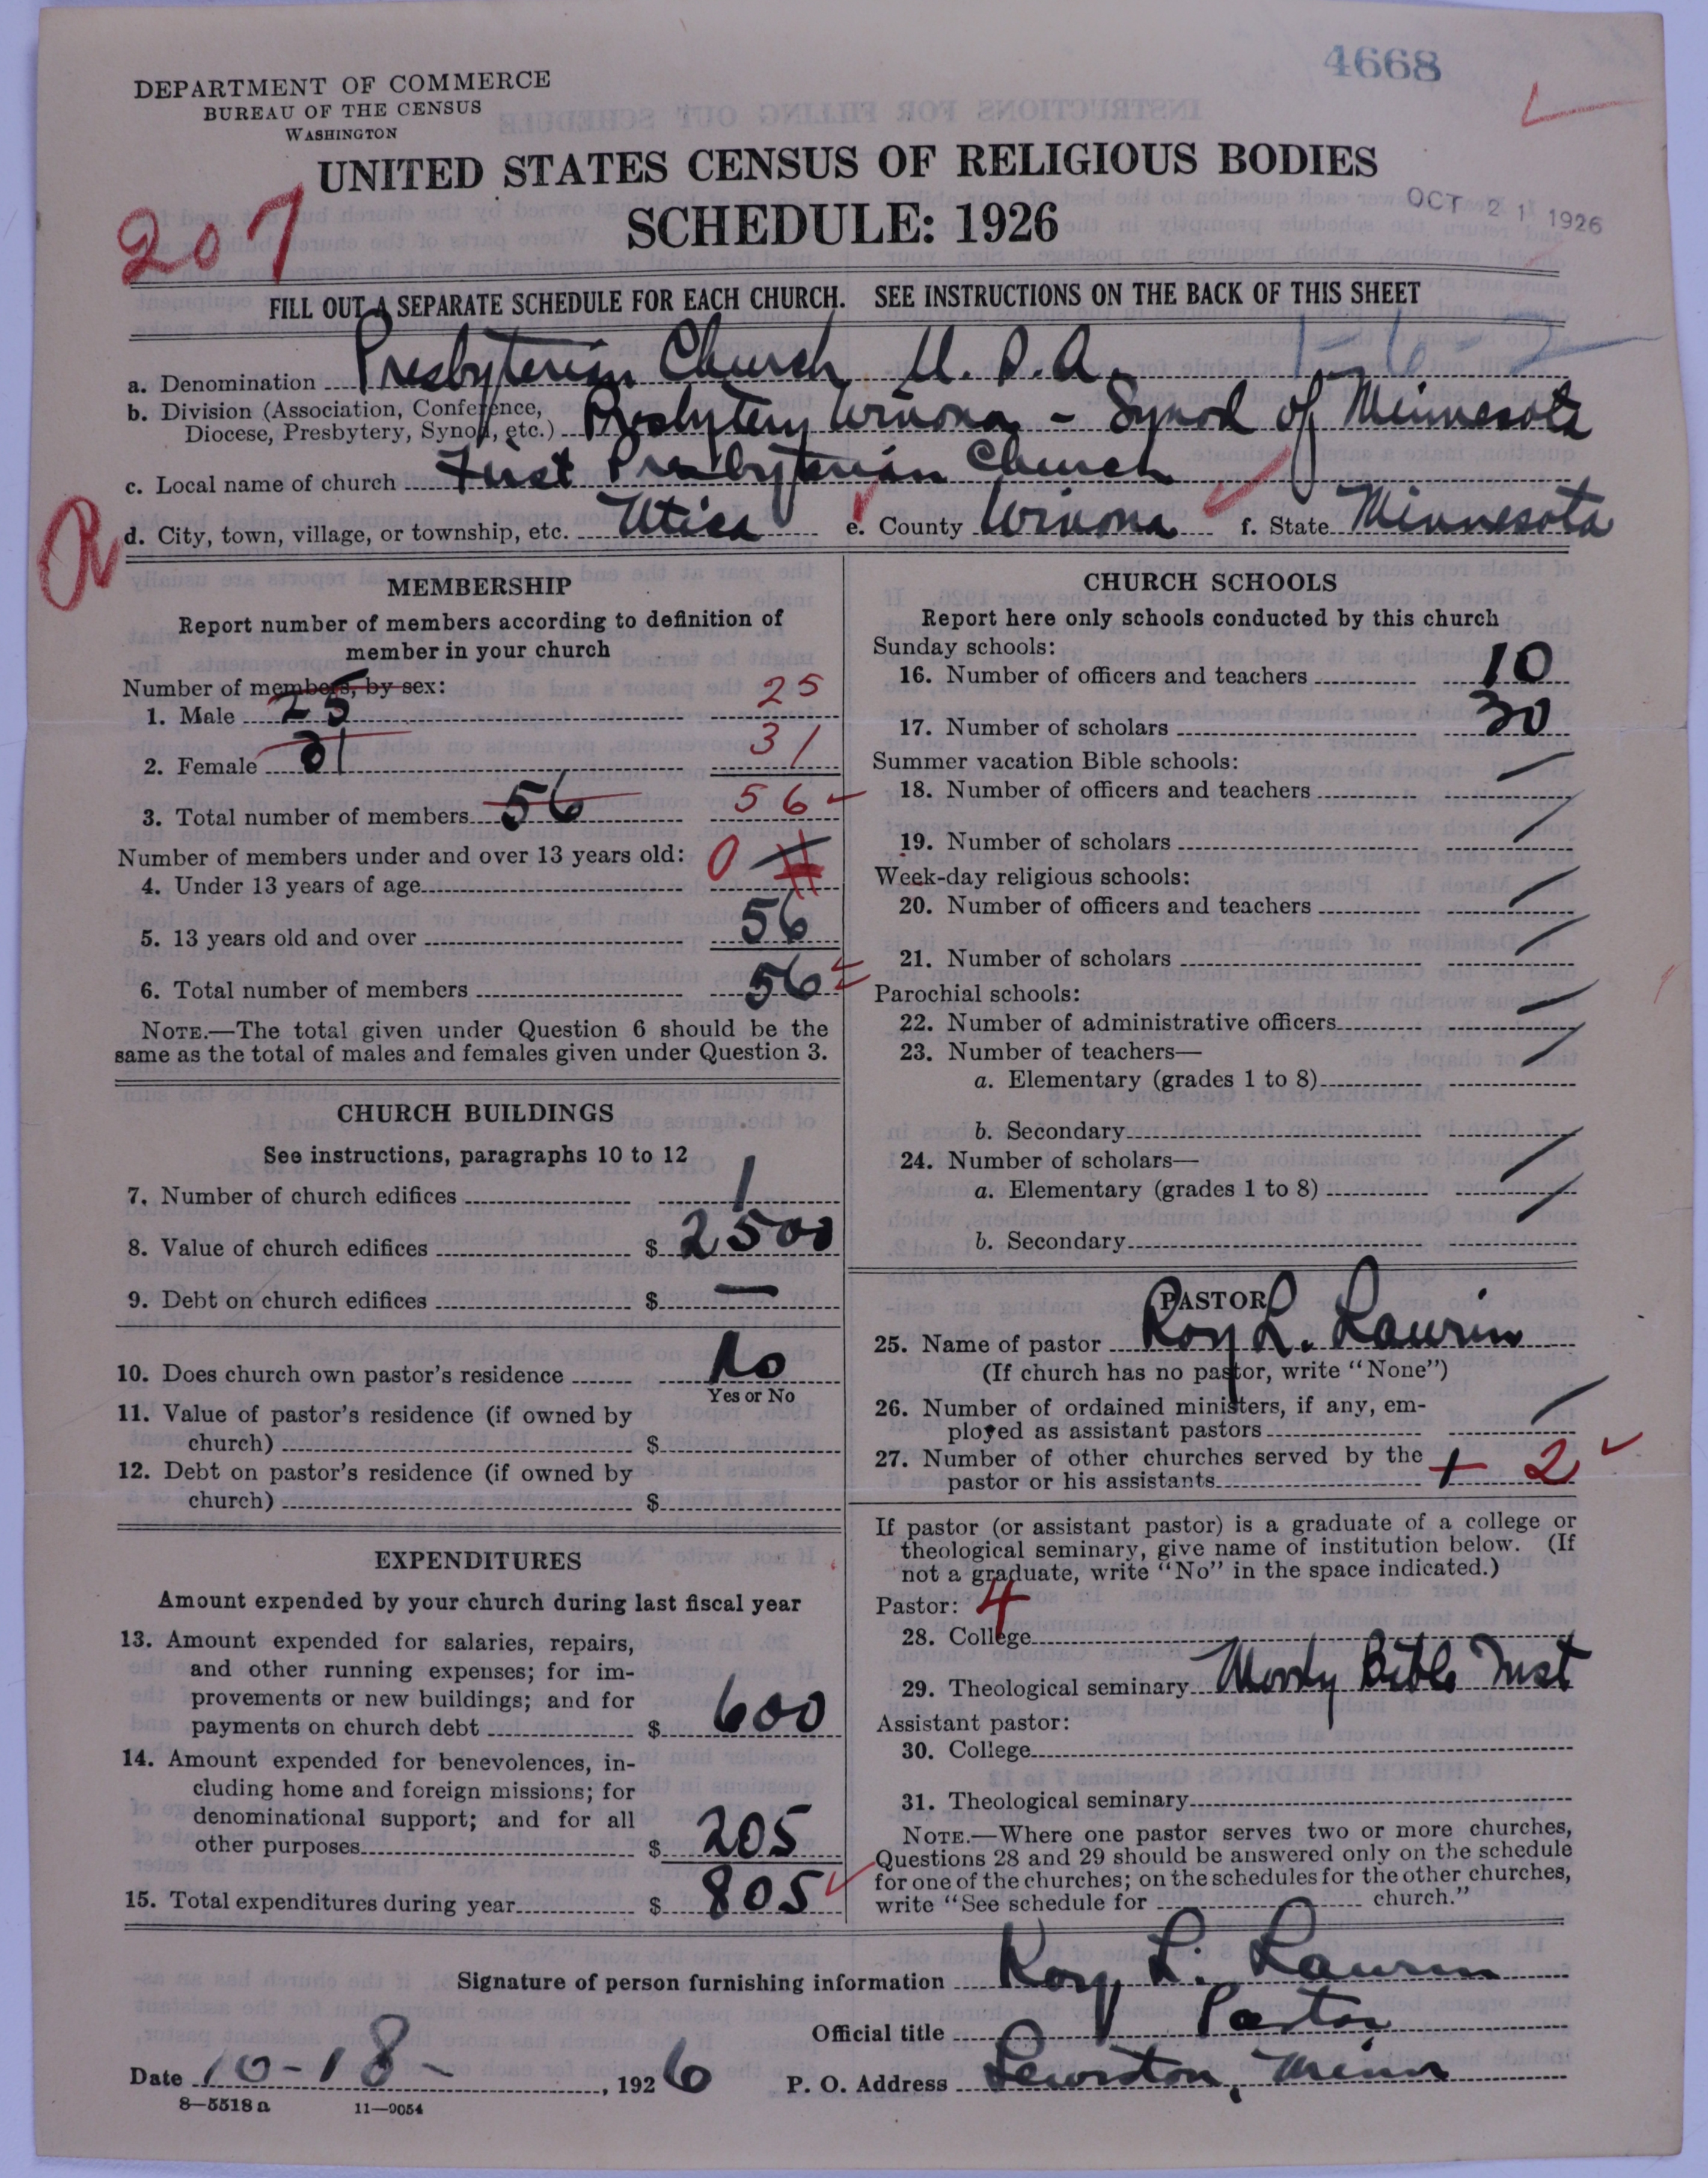 4668
DEPARTMENT OF COMMERCE
BUREAU OF THE CENSUS
WASHINGTON
UNITED STATES CENSUS OF RELIGIOUS BODIES
SCHEDULE: 1926
OCT 21 1926
207
FILL OUT A SEPARATE SCHEDULE FOR EACH CHURCH. SEE INSTRUCTIONS ON THE BACK OF THIS SHEET
1-6-2
a. Denomination Presbyterian Church U.S.A.
b. Division (Association, Conference,
Diocese, Presbytery, Synod, etc.) Presbytery Winona - Synod of Minnesota
c. Local name of church First Presbyterian Church
R
d. City, town, village, or township, etc. Utica e. County Winona f. State Minnesota
MEMBERSHIP
Report number of members according to definition of
member in your church
Number of members, by sex:
1. Male 25 25
2. Female 31 31
3. Total number of members 56 56
Number of members under and over 13 years old:
4. Under 13 years of age 0
5. 13 years old and over 56
6. Total number of members 56
NOTE.—The total given under Question 6 should be the
same as the total of males and females given under Question 3.
CHURCH BUILDINGS
See instructions, paragraphs 10 to 12
7. Number of church edifices 1
8. Value of church edifices $ 2500
9. Debt on church edifices $ —
10. Does church own pastor's residence No
Yes or No
11. Value of pastor's residence (if owned by
church) $
12. Debt on pastor's residence (if owned by
church) $
EXPENDITURES
Amount expended by your church during last fiscal year
13. Amount expended for salaries, repairs,
and other running expenses; for im-
provements or new buildings; and for
payments on church debt $ 600
14. Amount expended for benevolences, in-
cluding home and foreign missions; for
denominational support; and for all
other purposes $ 205
15. Total expenditures during year $ 805
CHURCH SCHOOLS
Report here only schools conducted by this church
Sunday schools:
16. Number of officers and teachers 10
17. Number of scholars 30
Summer vacation Bible schools:
18. Number of officers and teachers
19. Number of scholars
Week-day religious schools:
20. Number of officers and teachers
21. Number of scholars
Parochial schools:
22. Number of administrative officers
23. Number of teachers—
a. Elementary (grades 1 to 8)
b. Secondary
24. Number of scholars—
a. Elementary (grades 1 to 8)
b. Secondary
PASTOR
25. Name of pastor Roy L. Laurin
(If church has no pastor, write "None")
26. Number of ordained ministers, if any, em-
ployed as assistant pastors
27. Number of other churches served by the
pastor or his assistants 2
If pastor (or assistant pastor) is a graduate of a college or
theological seminary, give name of institution below. (If
not a graduate, write "No" in the space indicated.)
Pastor: 4
28. College
29. Theological seminary Moody Bible Inst
Assistant pastor:
30. College
31. Theological seminary
NOTE.—Where one pastor serves two or more churches,
Questions 28 and 29 should be answered only on the schedule
for one of the churches; on the schedules for the other churches,
write "See schedule for church."
Signature of person furnishing information Roy L. Laurin
Official title Pastor
Date 10-18- , 1926 P. O. Address Lewiston, Minn
8—5518a 11—9054